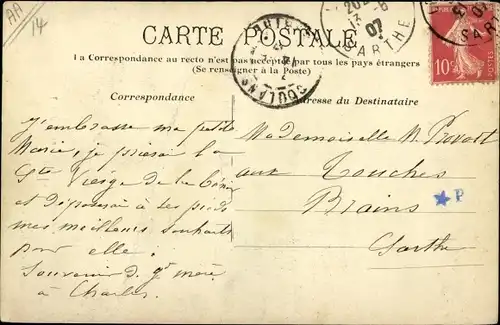 AA
14
CARTE POSTALE
La Correspondance au recto n'est pas acceptée par tous les pays étrangers
(Se renseigner à la Poste)
Correspondance
Adresse du Destinataire
20
13 - 6
07
SARTHE
COULANS
SAR
10
J'embrasse ma petite
Marie, je prierai la
Ste Vierge de la bénir
et déposerai à ses pieds
mes meilleurs souhaits
pour elle.
Souvenir de gd mère
à Charles.
Mademoiselle M. Provost
aux Touches
Brains
Sarthe
P